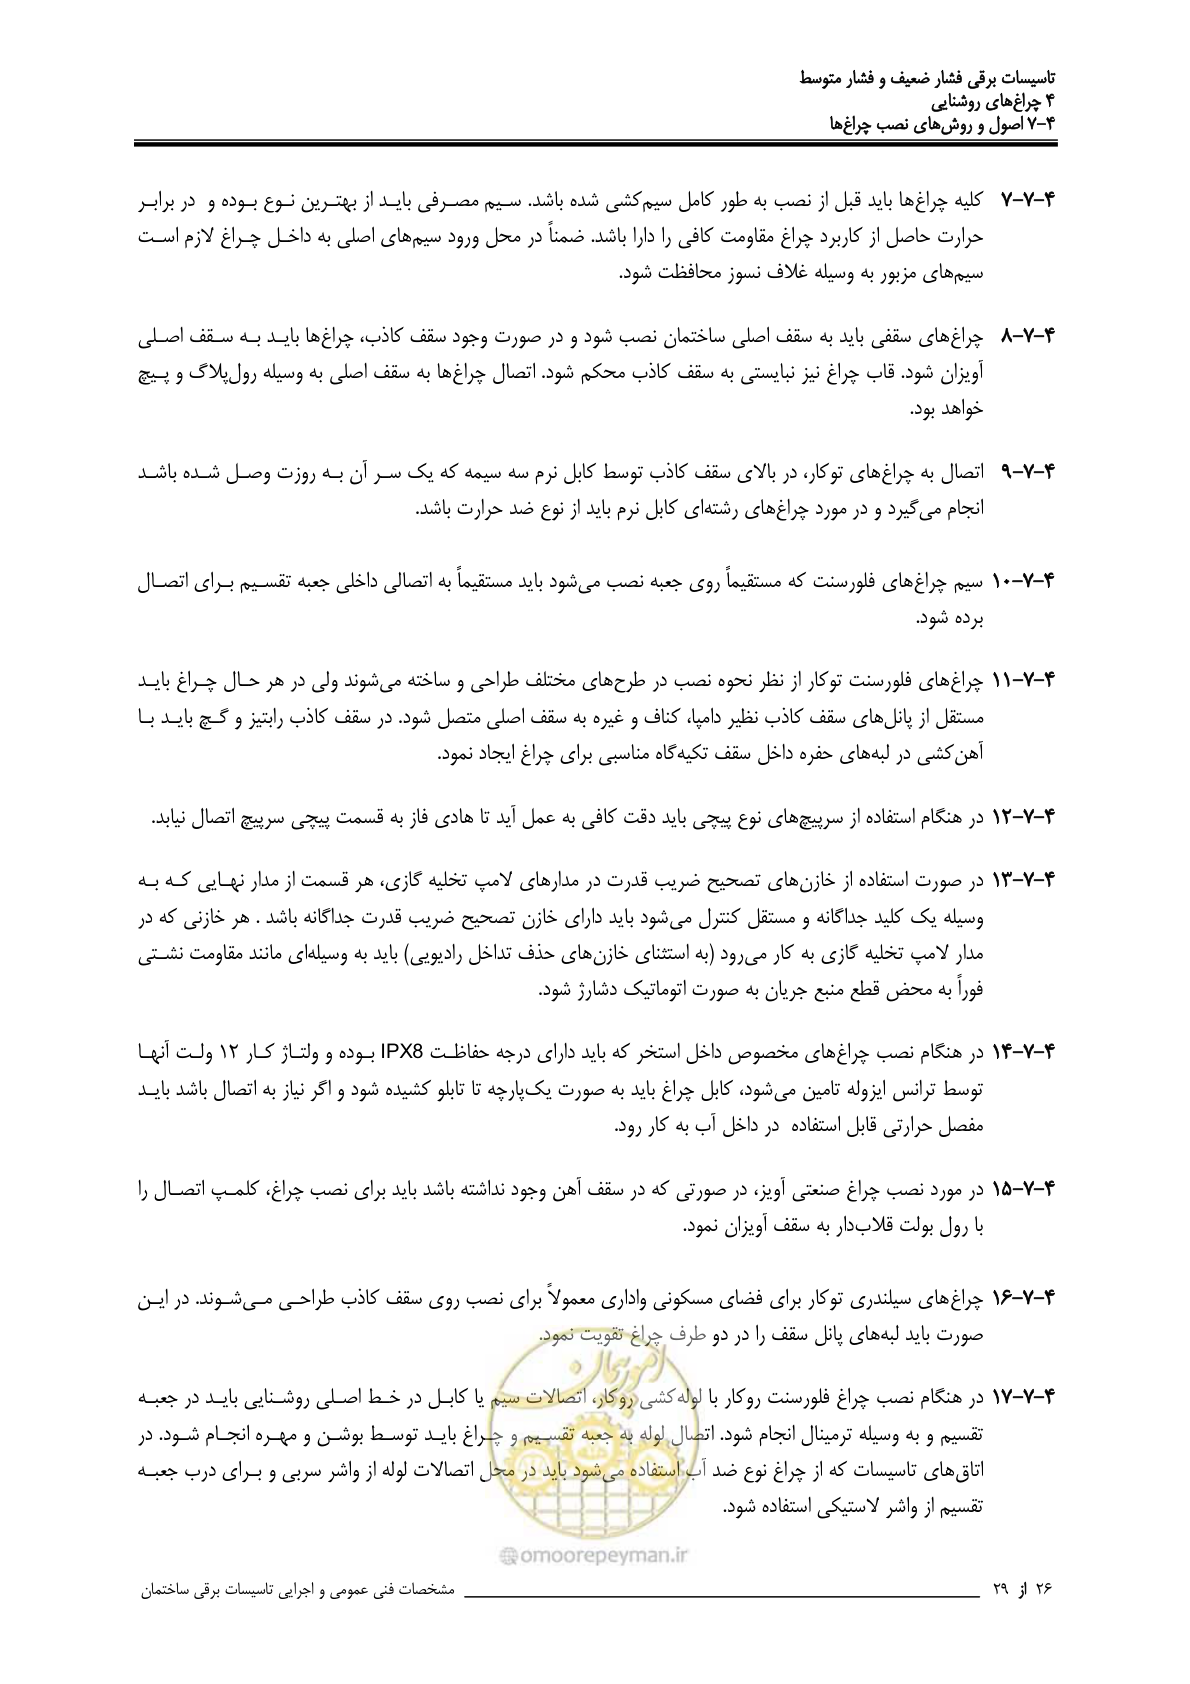 تاسیسات برقی فشار ضعیف و فشار متوسط
۴ چراغ‌های روشنایی
۴-۷ اصول و روش‌های نصب چراغ‌ها
۴-۷-۷ کلیه چراغ‌ها باید قبل از نصب به طور کامل سیم‌کشی شده باشد. سیم مصرفی باید از بهترین نوع بوده و در برابر
حرارت حاصل از کاربرد چراغ مقاومت کافی را دارا باشد. ضمناً در محل ورود سیم‌های اصلی به داخل چراغ لازم است
سیم‌های مزبور به وسیله غلاف نسوز محافظت شود.
۴-۷-۸ چراغ‌های سقفی باید به سقف اصلی ساختمان نصب شود و در صورت وجود سقف کاذب، چراغ‌ها باید به سقف اصلی
آویزان شود. قاب چراغ نیز نبایستی به سقف کاذب محکم شود. اتصال چراغ‌ها به سقف اصلی به وسیله رول‌پلاگ و پیچ
خواهد بود.
۴-۷-۹ اتصال به چراغ‌های توکار، در بالای سقف کاذب توسط کابل نرم سه سیمه که یک سر آن به روزت وصل شده باشد
انجام می‌گیرد و در مورد چراغ‌های رشته‌ای کابل نرم باید از نوع ضد حرارت باشد.
۴-۷-۱۰ سیم چراغ‌های فلورسنت که مستقیماً روی جعبه نصب می‌شود باید مستقیماً به اتصالی داخلی جعبه تقسیم برای اتصال
برده شود.
۴-۷-۱۱ چراغ‌های فلورسنت توکار از نظر نحوه نصب در طرح‌های مختلف طراحی و ساخته می‌شوند ولی در هر حال چراغ باید
مستقل از پانل‌های سقف کاذب نظیر دامپا، کناف و غیره به سقف اصلی متصل شود. در سقف کاذب رابتیز و گچ باید با
آهن‌کشی در لبه‌های حفره داخل سقف تکیه‌گاه مناسبی برای چراغ ایجاد نمود.
۴-۷-۱۲ در هنگام استفاده از سرپیچ‌های نوع پیچی باید دقت کافی به عمل آید تا هادی فاز به قسمت پیچی سرپیچ اتصال نیابد.
۴-۷-۱۳ در صورت استفاده از خازن‌های تصحیح ضریب قدرت در مدارهای لامپ تخلیه گازی، هر قسمت از مدار نهایی که به
وسیله یک کلید جداگانه و مستقل کنترل می‌شود باید دارای خازن تصحیح ضریب قدرت جداگانه باشد . هر خازنی که در
مدار لامپ تخلیه گازی به کار می‌رود (به استثنای خازن‌های حذف تداخل رادیویی) باید به وسیله‌ای مانند مقاومت نشتی
فوراً به محض قطع منبع جریان به صورت اتوماتیک دشارژ شود.
۴-۷-۱۴ در هنگام نصب چراغ‌های مخصوص داخل استخر که باید دارای درجه حفاظت IPX8 بوده و ولتاژ کار ۱۲ ولت آنها
توسط ترانس ایزوله تامین می‌شود، کابل چراغ باید به صورت یک‌پارچه تا تابلو کشیده شود و اگر نیاز به اتصال باشد باید
مفصل حرارتی قابل استفاده در داخل آب به کار رود.
۴-۷-۱۵ در مورد نصب چراغ صنعتی آویز، در صورتی که در سقف آهن وجود نداشته باشد باید برای نصب چراغ، کلمپ اتصال را
با رول بولت قلاب‌دار به سقف آویزان نمود.
۴-۷-۱۶ چراغ‌های سیلندری توکار برای فضای مسکونی واداری معمولاً برای نصب روی سقف کاذب طراحی می‌شوند. در این
صورت باید لبه‌های پانل سقف را در دو طرف چراغ تقویت نمود.
امور پیمان
۴-۷-۱۷ در هنگام نصب چراغ فلورسنت روکار با لوله‌کشی روکار، اتصالات سیم یا کابل در خط اصلی روشنایی باید در جعبه
تقسیم و به وسیله ترمینال انجام شود. اتصال لوله به جعبه تقسیم و چراغ باید توسط بوشن و مهره انجام شود. در
اتاق‌های تاسیسات که از چراغ نوع ضد آب استفاده می‌شود باید در محل اتصالات لوله از واشر سربی و برای درب جعبه
تقسیم از واشر لاستیکی استفاده شود.
@omoorepeyman.ir
۲۶ از ۲۹ مشخصات فنی عمومی و اجرایی تاسیسات برقی ساختمان